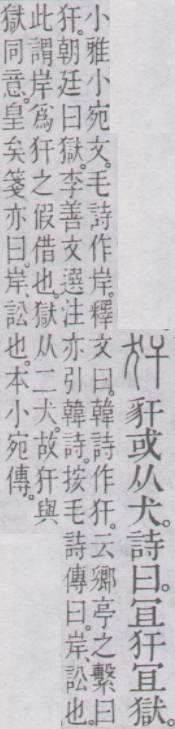 犴 豻或从犬。詩曰。冝犴冝獄。
小雅小宛文。毛詩作岸。釋文曰。韓詩作犴。云鄉亭之繫曰
犴。朝廷曰獄。李善文選注亦引韓詩。按毛詩傳曰。岸、訟也。
此謂岸爲犴之假借也。獄从二犬。故犴與
獄同意。皇矣箋亦曰。岸、訟也。本小宛傳。